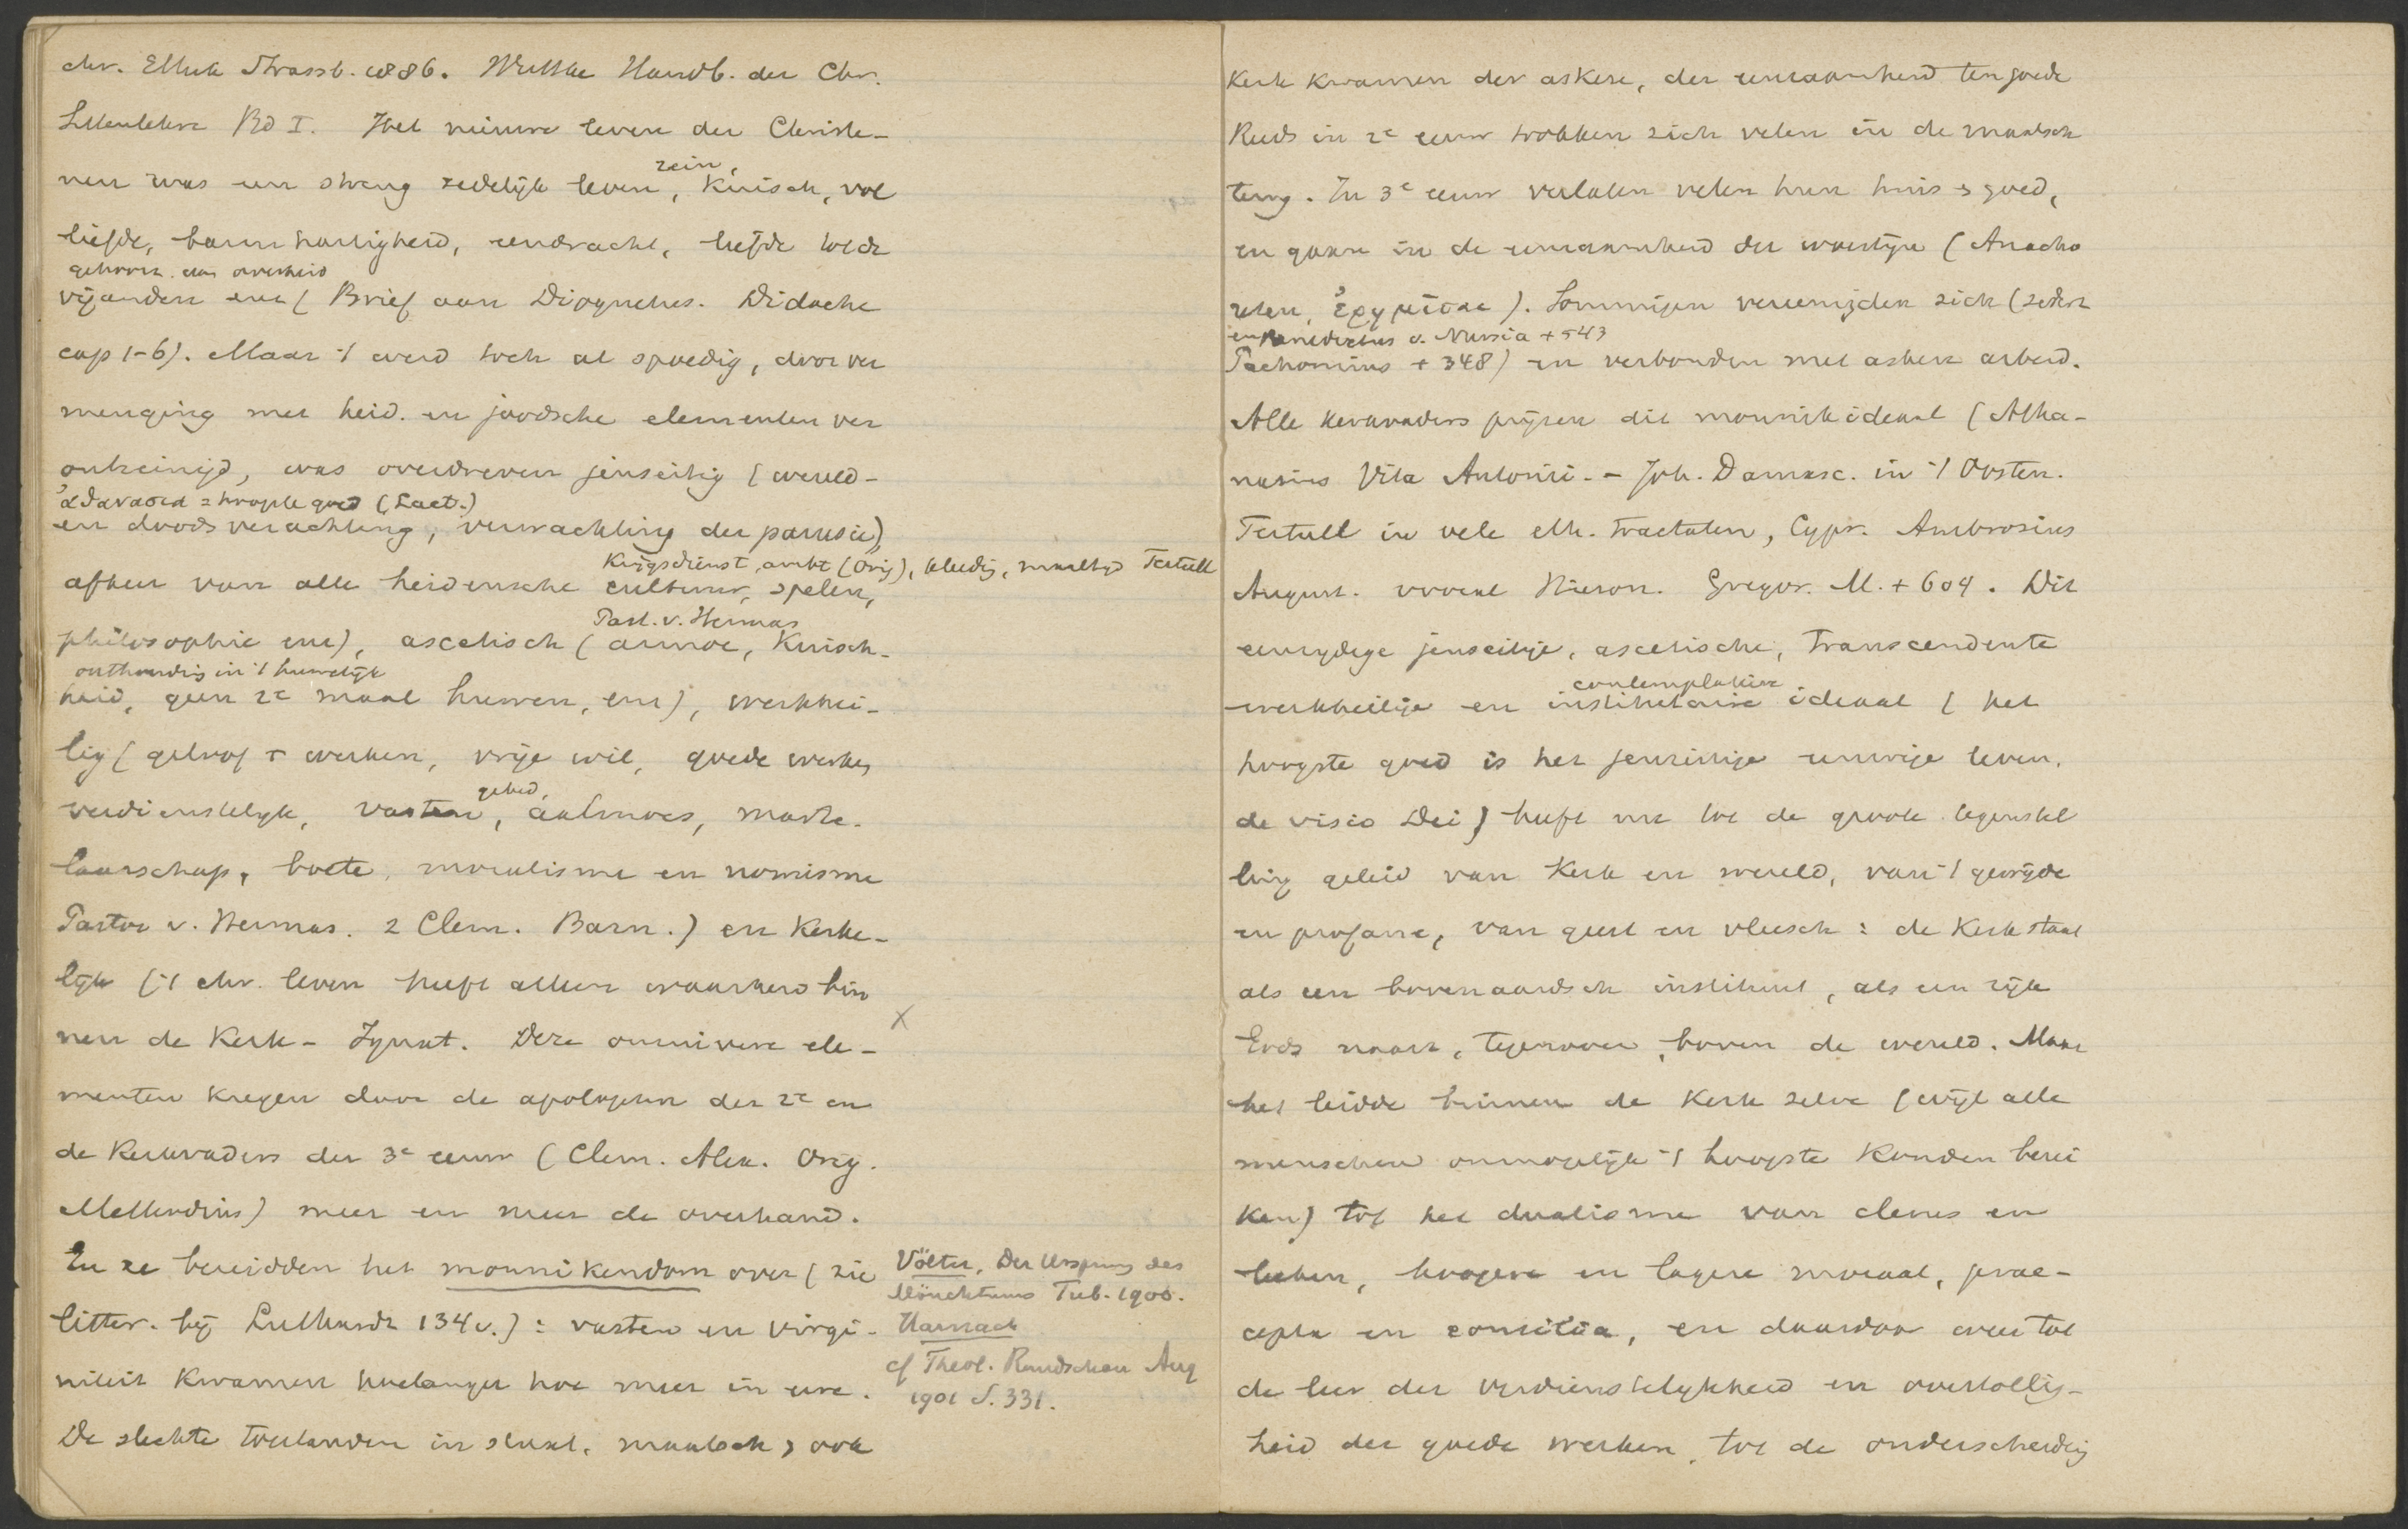 chr. Ethik Strassb. 1886. Wuttke Handb. der Chr.
Sittenlehre Bd I. Het nieuwe leven der Christe-
nen was een streng zedelijk leven, rein, kuisch, vol
liefde, barmhartigheid, eendracht, liefde tot de
gehoorz. aan overheid
vijanden enz (Brief aan Diognetus. Didache
cap 1-6). Maar 't werd toch al spoedig, door ver
menging met heid. en joodsche elementen ver
ontreinigd, was overdreven jenseitig (wereld-
ἀθανασια = hoogste goed (Lact.)
en doodsverachting, verwachting der parusie),
Krijgsdienst, ambt (Orig), kleedij, maaltijd Tertull
afkeer van alle heidensche cultuur, spelen,
Past. v. Hermas
philosophie enz), ascetisch (armoe, Kuisch-
onthouding in 't huwelijk
heid, geen 2e maal huwen, enz), werkhei-
lig (geloof + werken, vrije wil, goede werken
verdienstelijk, vasten, gebed, aalmoes, marte-
laarschap, boete, moralisme en nomisme
Pastor v. Hermas. 2 Clem. Barn.) en Kerke-
lijk ('t chr. leven heeft alleen waarheid bin
nen de Kerk - Ignat. Deze onzuivere ele- X
menten kregen door de apologeten der 2e en
de Kerkvaders der 3e eeuw (Clem. Alex. Orig.
Methodius) meer en meer de overhand.
En ze bereidden het monnikendom voor (zie
litter. bij Luthardt 134v.): vasten en virgi-
niteit kwamen hoelanger hoe meer in eere.
De slechte toestanden in staat, maatsch, ook
Völter, Der Ursprung des
Mönchtums Tub. 1900.
Harnack
cf Theol. Rundschau Aug
1901 S. 331.
Kerk kwamen der askese, der eenzaamheid ten goede
Reeds in 2e eeuw trokken zich velen uit de maatsch
terug. In 3e eeuw verlaten velen hun huis & goed,
en gaan in de eenzaamheid der woestijn (Anacho
reten, ἐρημιται). Sommigen vereenigden sich (sedert
en Benedictus v. Nursia + 543
Pachomius + 348) en verbonden met askese arbeid.
Alle kerkvaders prijzen dit monnikideaal (Atha-
nasius Vita Antonii. - Joh. Damasc. in 't Oosten.
Tertull in vele eth. tractaten, Cypr. Ambrosius
August. vooral Hieron. Gregor. M. + 604. Dit
eenzijdige jenseitige, ascetische, transcendente
contemplatieve
werkheilige en institutaire ideaal (het
hoogste goed is het jenseitige eeuwige leven,
de visio Dei) heeft nu tot de groote tegenstel
ling geleid van Kerk en wereld, van 't gewijde
en profane, van geest en vleesch: de Kerk staat
als een bovenaardsch instituut, als een rijk
Gods naast, tegenover, boven de wereld. Maar
het leidde binnen de Kerk zelve (wijl alle
menschen onmogelijk 't hoogste konden berei
ken) tot het dualisme van clerus en
leeken, hoogere en lagere moraal, prae-
cepta en consilia, en daardoor weer tot
de leer der verdienstelijkheid en overtollig-
heid der goede werken, tot de onderscheiding